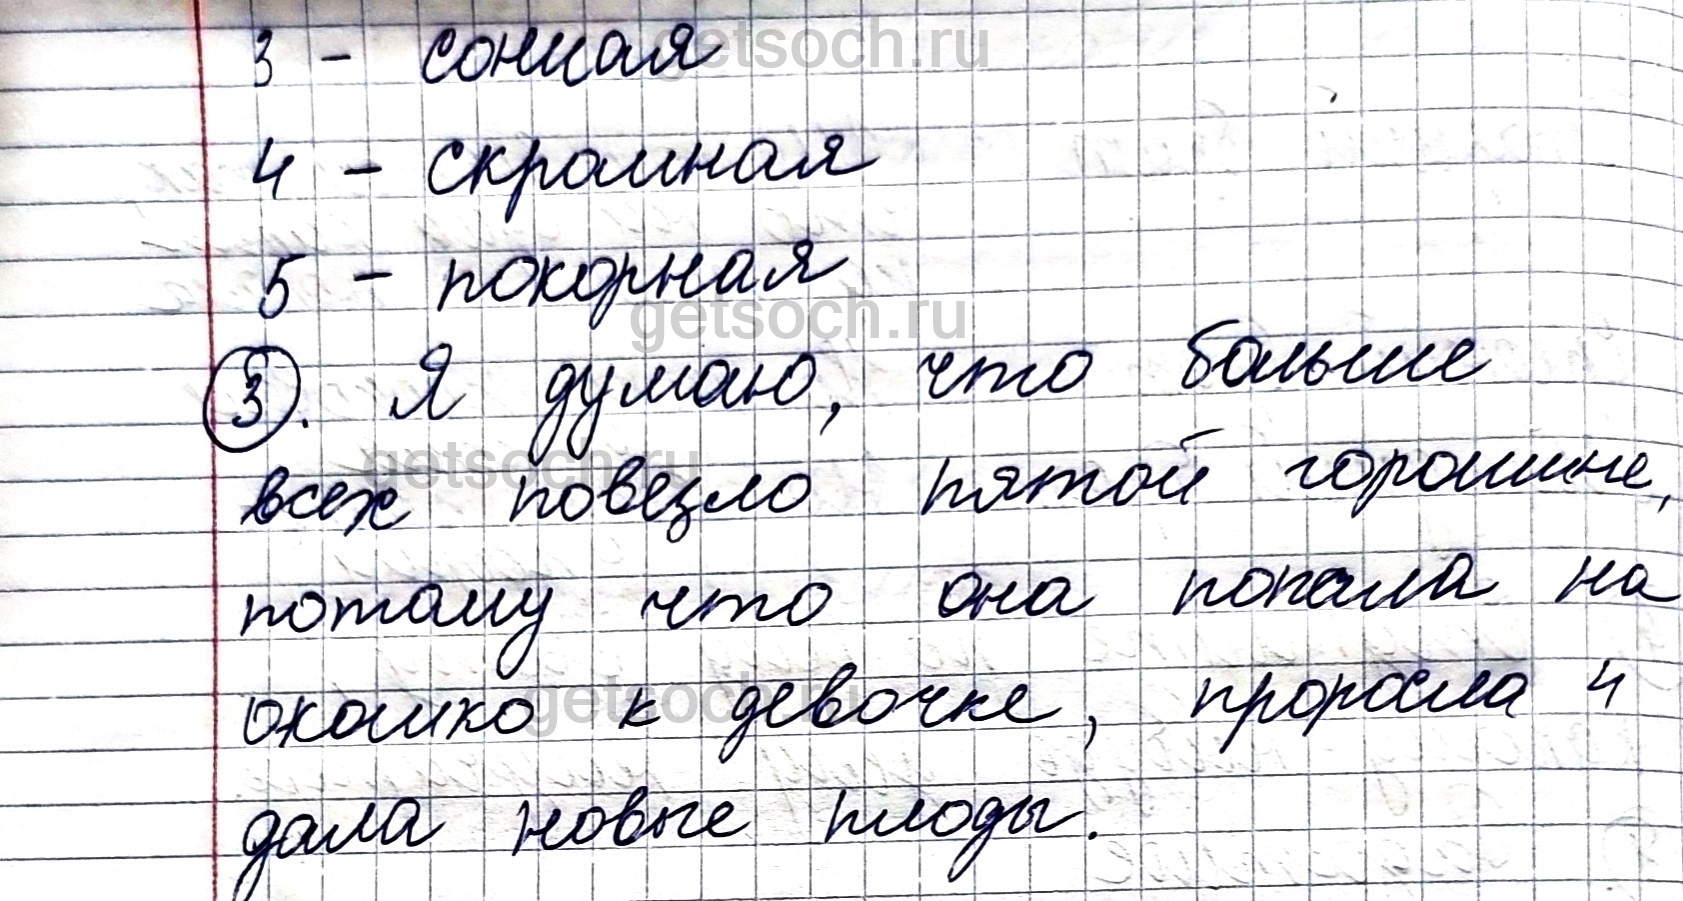 3 - сонная
getsoch.ru
4 - скромная
5 - покорная
getsoch.ru
3. Я думаю, что больше
всех повезло пятой горошине,
getsoch.ru
потому что она попала на
окошко к девочке, проросла и
getsoch.ru
дала новые плоды.